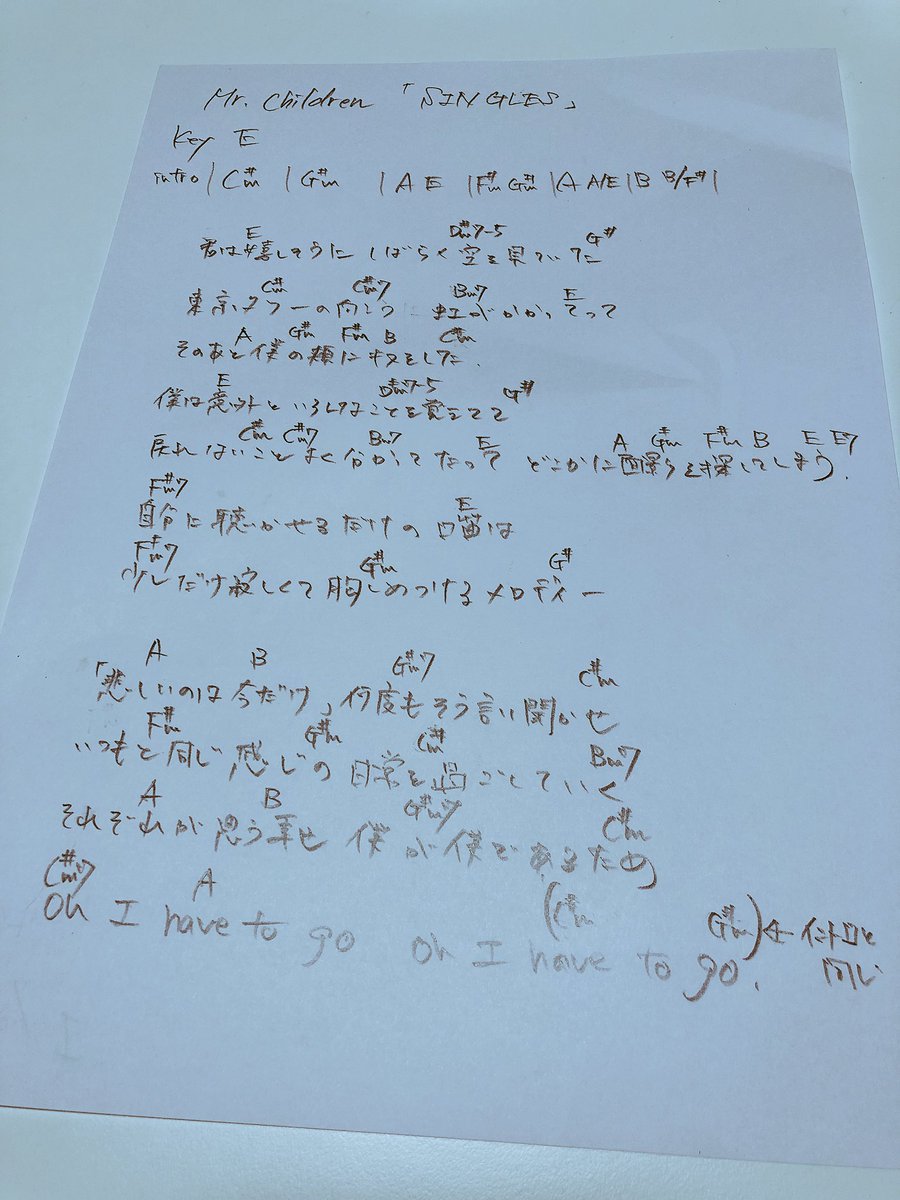 Mr. Children 「SINGLES」
Key E
intro | C#m | G#m | A E | F#m G#m | A A/E | B B/F# |
E D#m7-5 G#
君は嬉しそうに しばらく空を見ていた
C#m C#m7 Bm7 E
東京タワーの向こうに 虹がかかってって
A G#m F#m B C#m
そのあと僕の頬にキスをした.
E D#m7-5 G#
僕は意外といろんなことを覚えてて
C#m C#m7 Bm7 E A G#m F#m B E E7
戻れないことよく分かってたって どこかに面影を探してしまう.
F#m7 E
自分に聴かせるだけの口笛は
F#m7 G#m G#
少しだけ寂しくて胸しめつけるメロディー
A B G#m7 C#m
「悲しいのは今だけ」何度もそう言い聞かせ
F#m G#m C#m Bm7
いつもと同じ感じの日常を過ごしていく
A B G#m7 C#m
それぞれが思う幸せ 僕が僕であるため
C#m7 A (C#m G#m) ← イントロと同じ
Oh I have to go Oh I have to go.